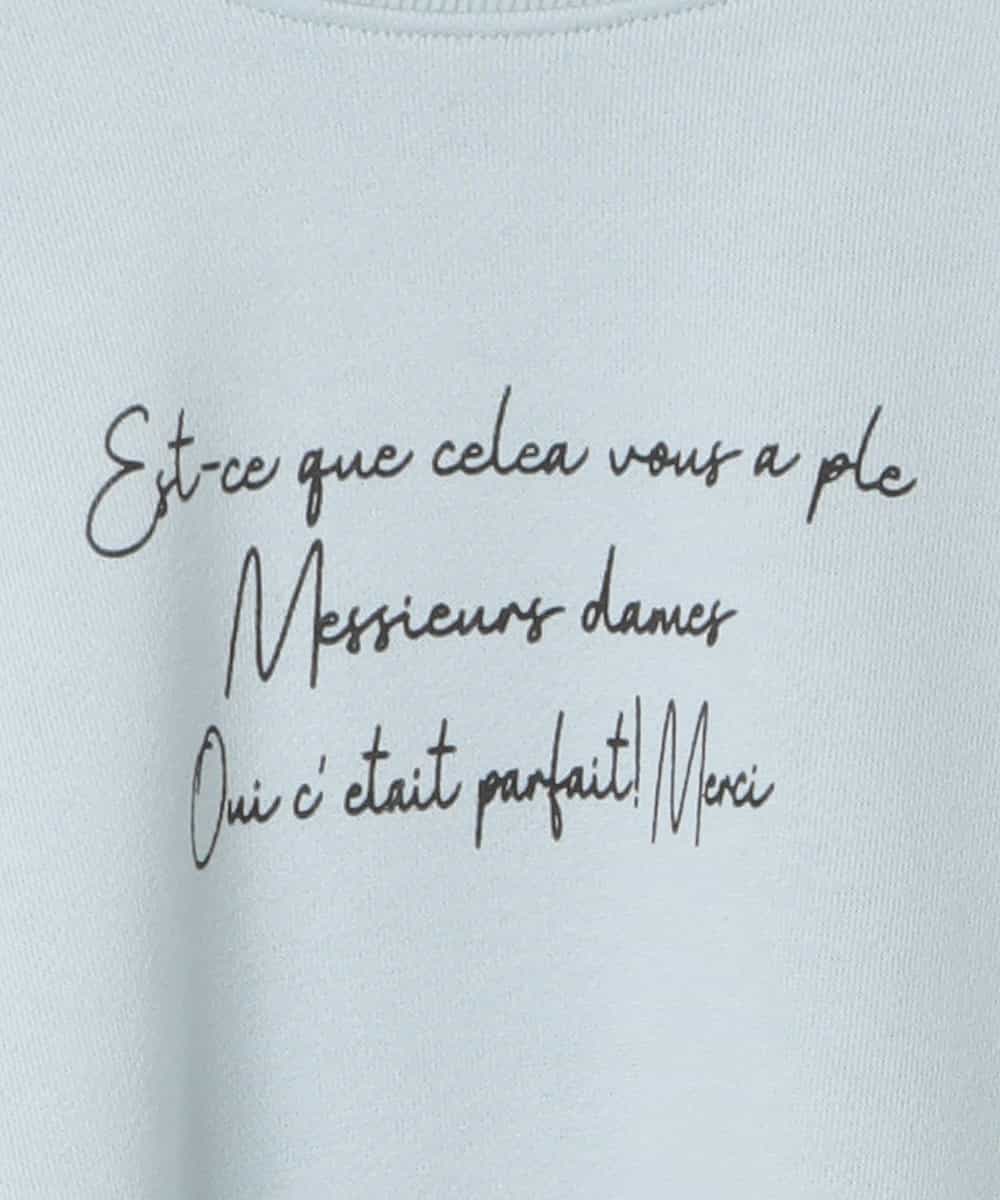 Est-ce que celea vous a ple
Messieurs dames
Oui c' etait parfait! Merci